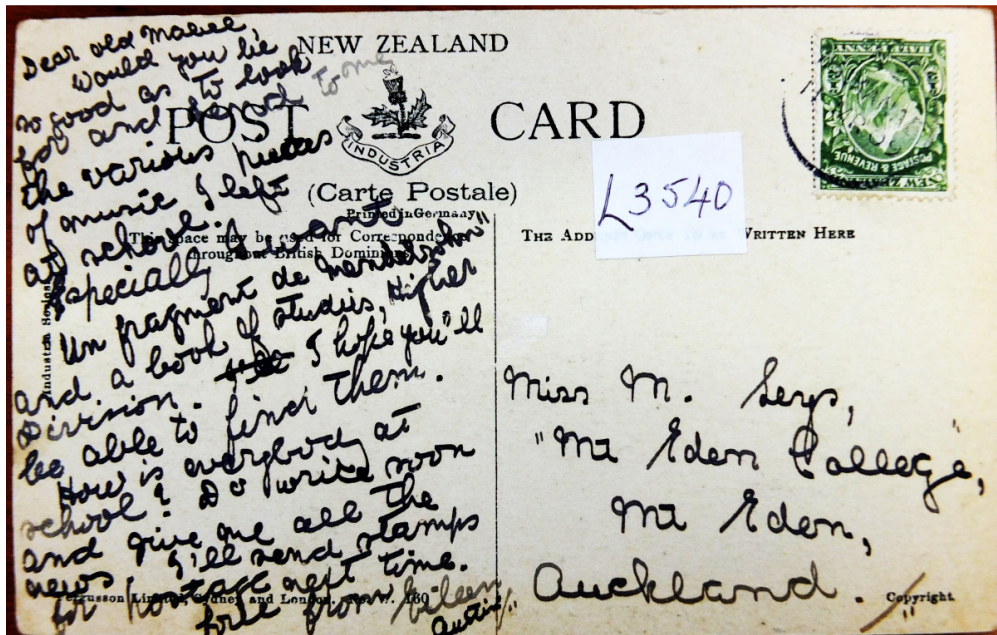 NEW ZEALAND
POST CARD
INDUSTRIA
(Carte Postale)
Printed in Germany
This space may be used for Correspondence
throughout British Dominions
THE ADD WRITTEN HERE
L3540
HALF PENNY
POSTAGE & REVENUE
NEW ZEALAND
Dear old Mabel,
Would you be
so good as to look
for and send to me
the various pieces
of music I left
at school.
Especially I want
"Un fragment de Mendelssohn"
and a book of studies, Higher
Division. I hope you'll
be able to find them.
How is everybody at
school? Do write soon
and give me all the
news, I'll send stamps
for postage next time.
love from Eileen
Miss M. Seys,
"Mt Eden College",
Mt Eden,
Auckland.
Fergusson Limited, Sydney and London. No. 160
Copyright